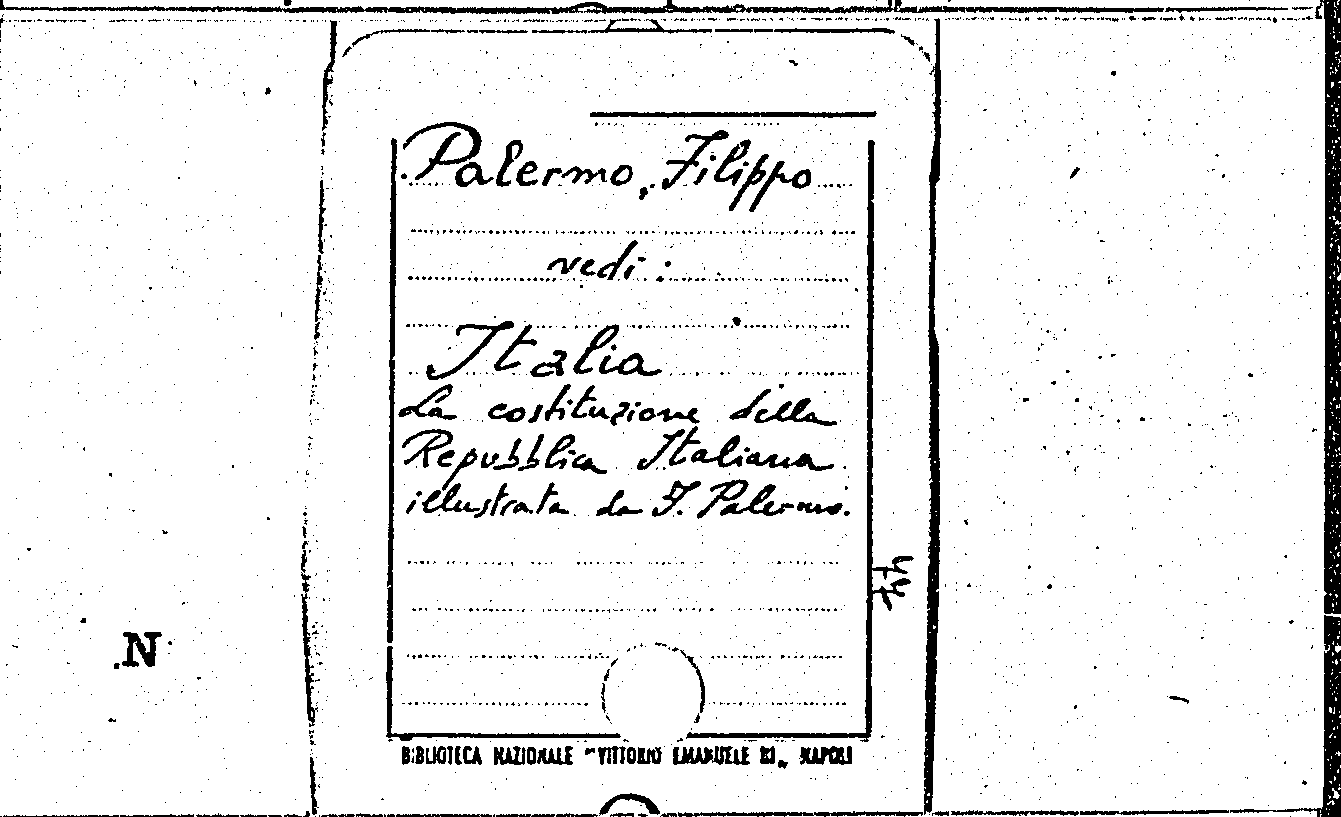 Palermo, Filippo
vedi:
Italia
La costituzione della
Repubblica Italiana
illustrata da F. Palermo.
N
BIBLIOTECA NAZIONALE "VITTORIO EMANUELE III" NAPOLI